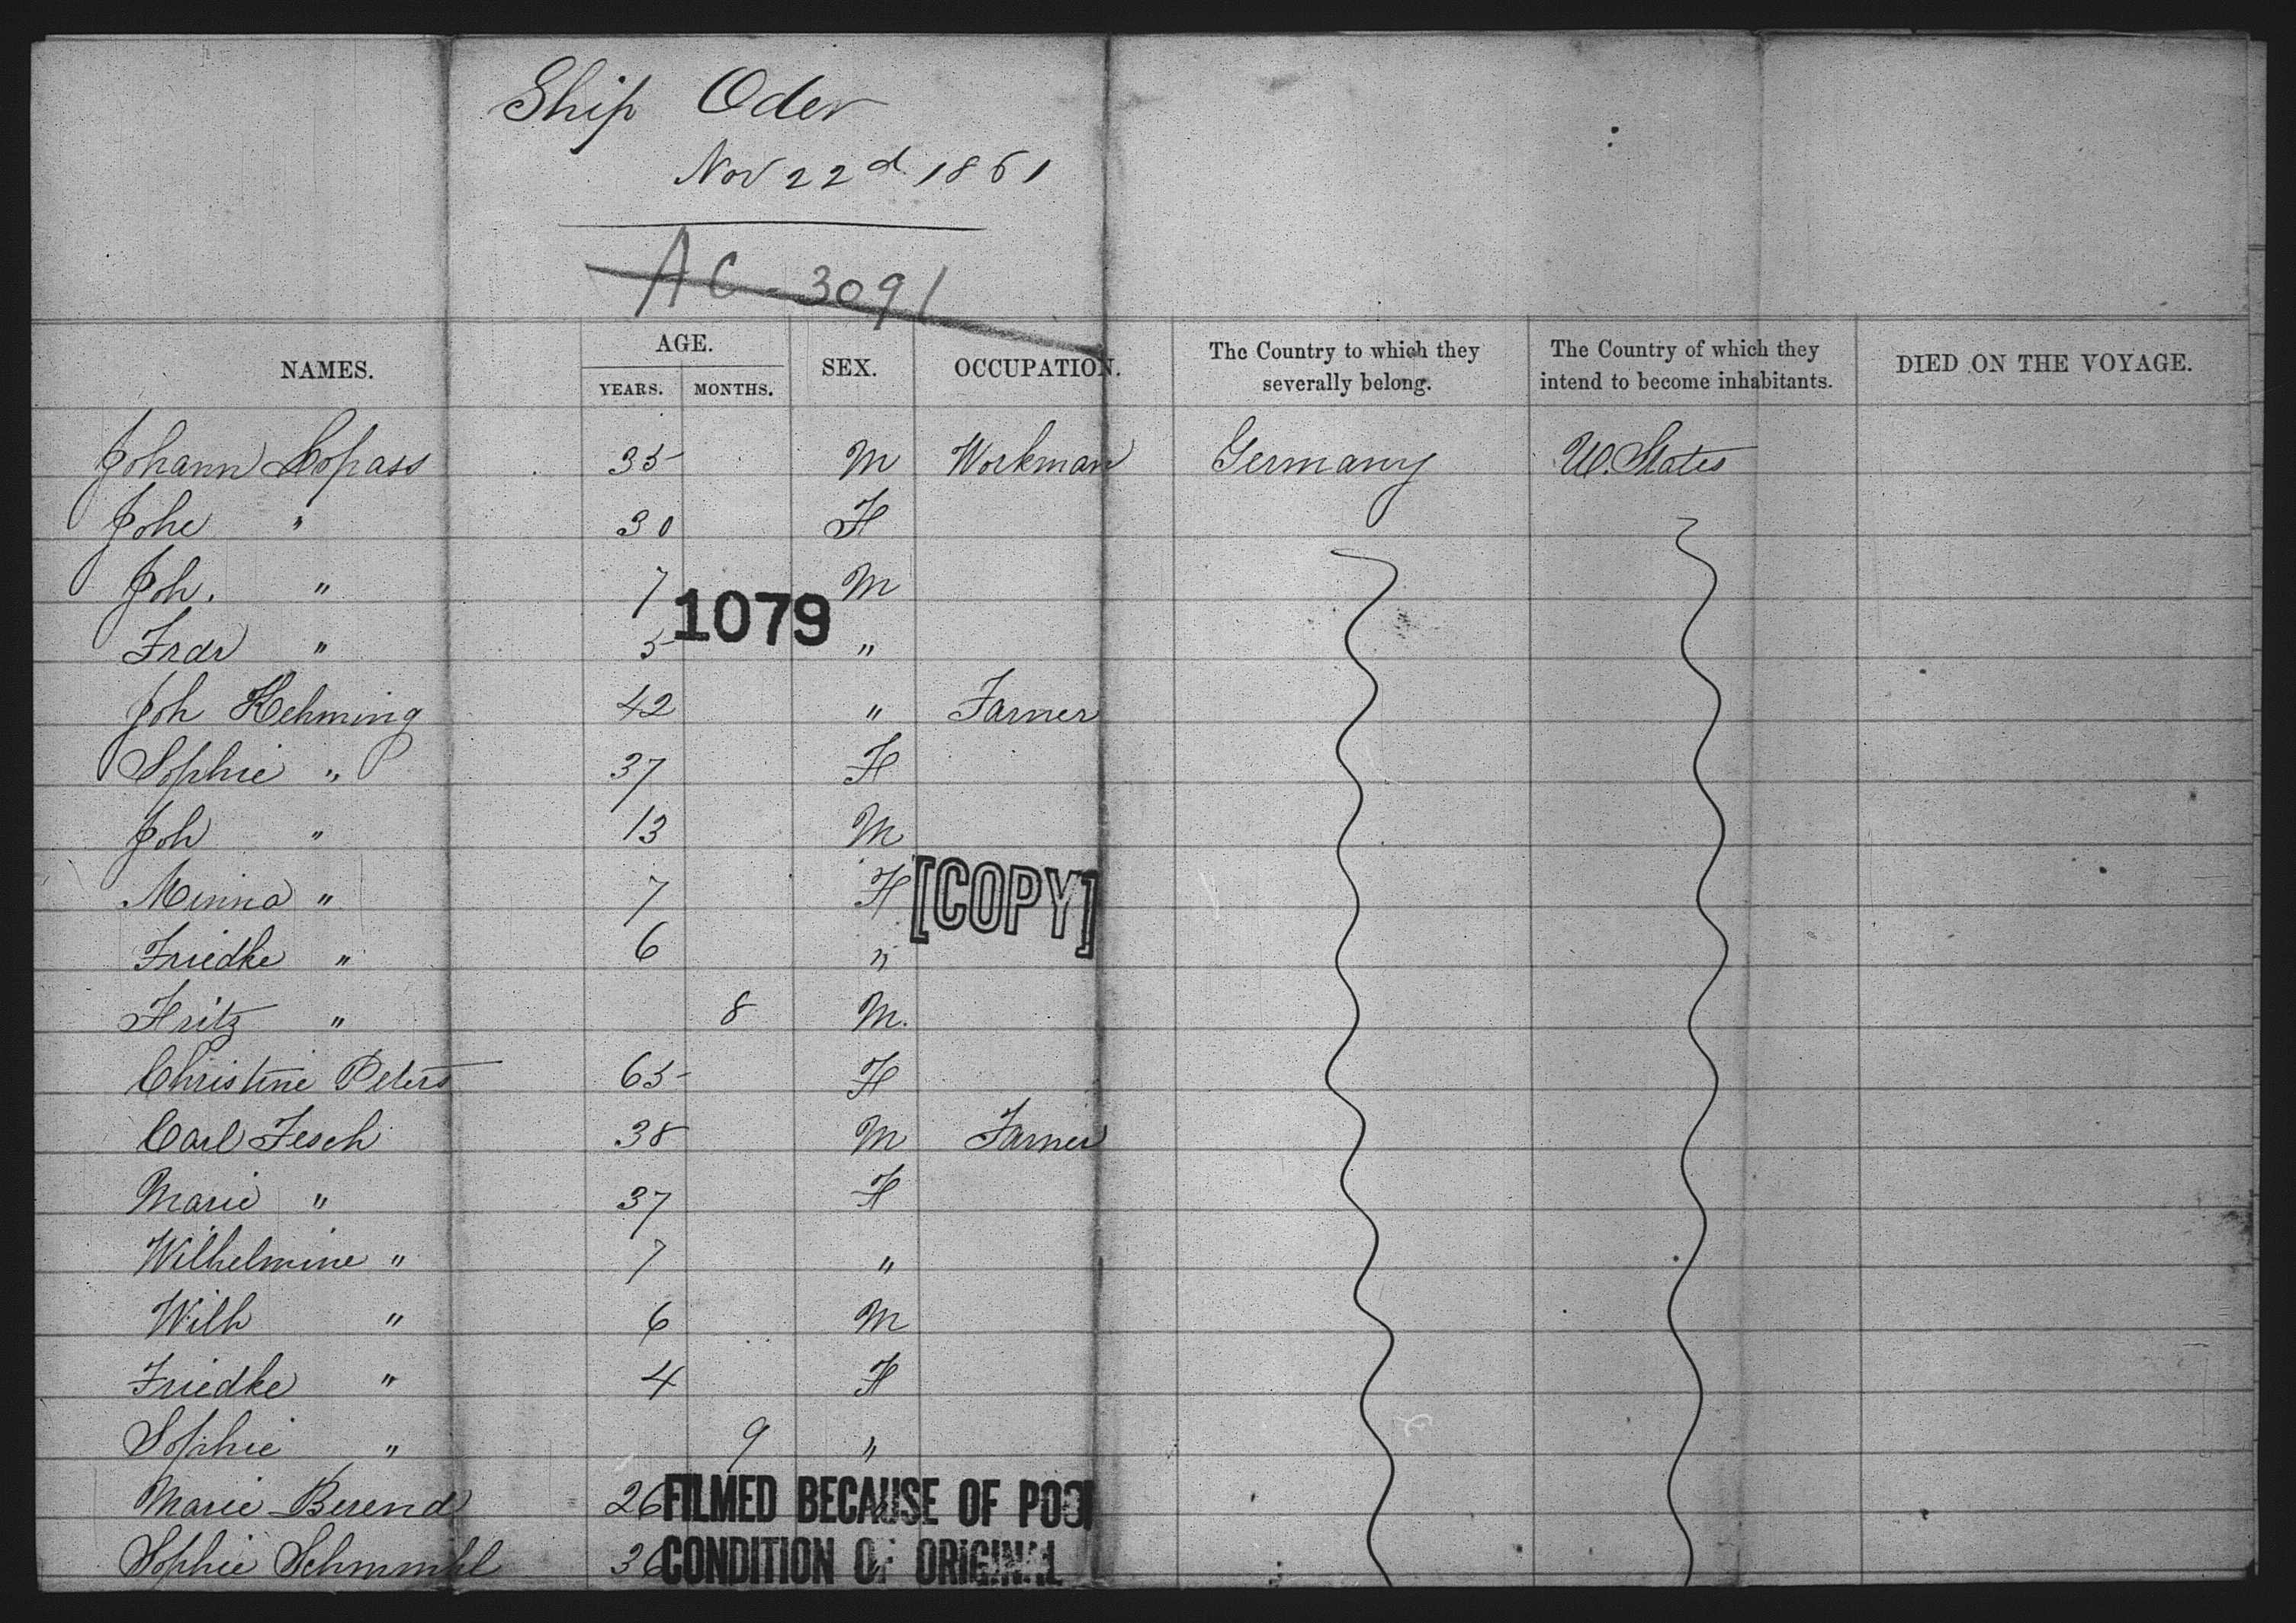 Ship Oder
Nov 22d 1861
AC-3091
NAMES. AGE. YEARS. MONTHS. SEX. OCCUPATION. The Country to which they severally belong. The Country of which they intend to become inhabitants. DIED ON THE VOYAGE.
Johann Lopass 35 M Workman Germany U. States
Johe " 30 F
Joh. " 7 M
1079
Frdr " 5 "
Joh Hehming 42 " Farmer
Sophie " 37 F
Joh " 13 M
Minna " 7 F
[COPY]
Friedke " 6 "
Fritz " 8 M.
Christine Peters 65 F
Carl Fesch 38 M Farmer
Marie " 37 F
Wilhelmine " 7 "
Wilh " 6 M
Friedke " 4 F
Sophie " 9 "
Marie Berend 26 "
FILMED BECAUSE OF POOR
Sophie 36 "
CONDITION OF ORIGINAL